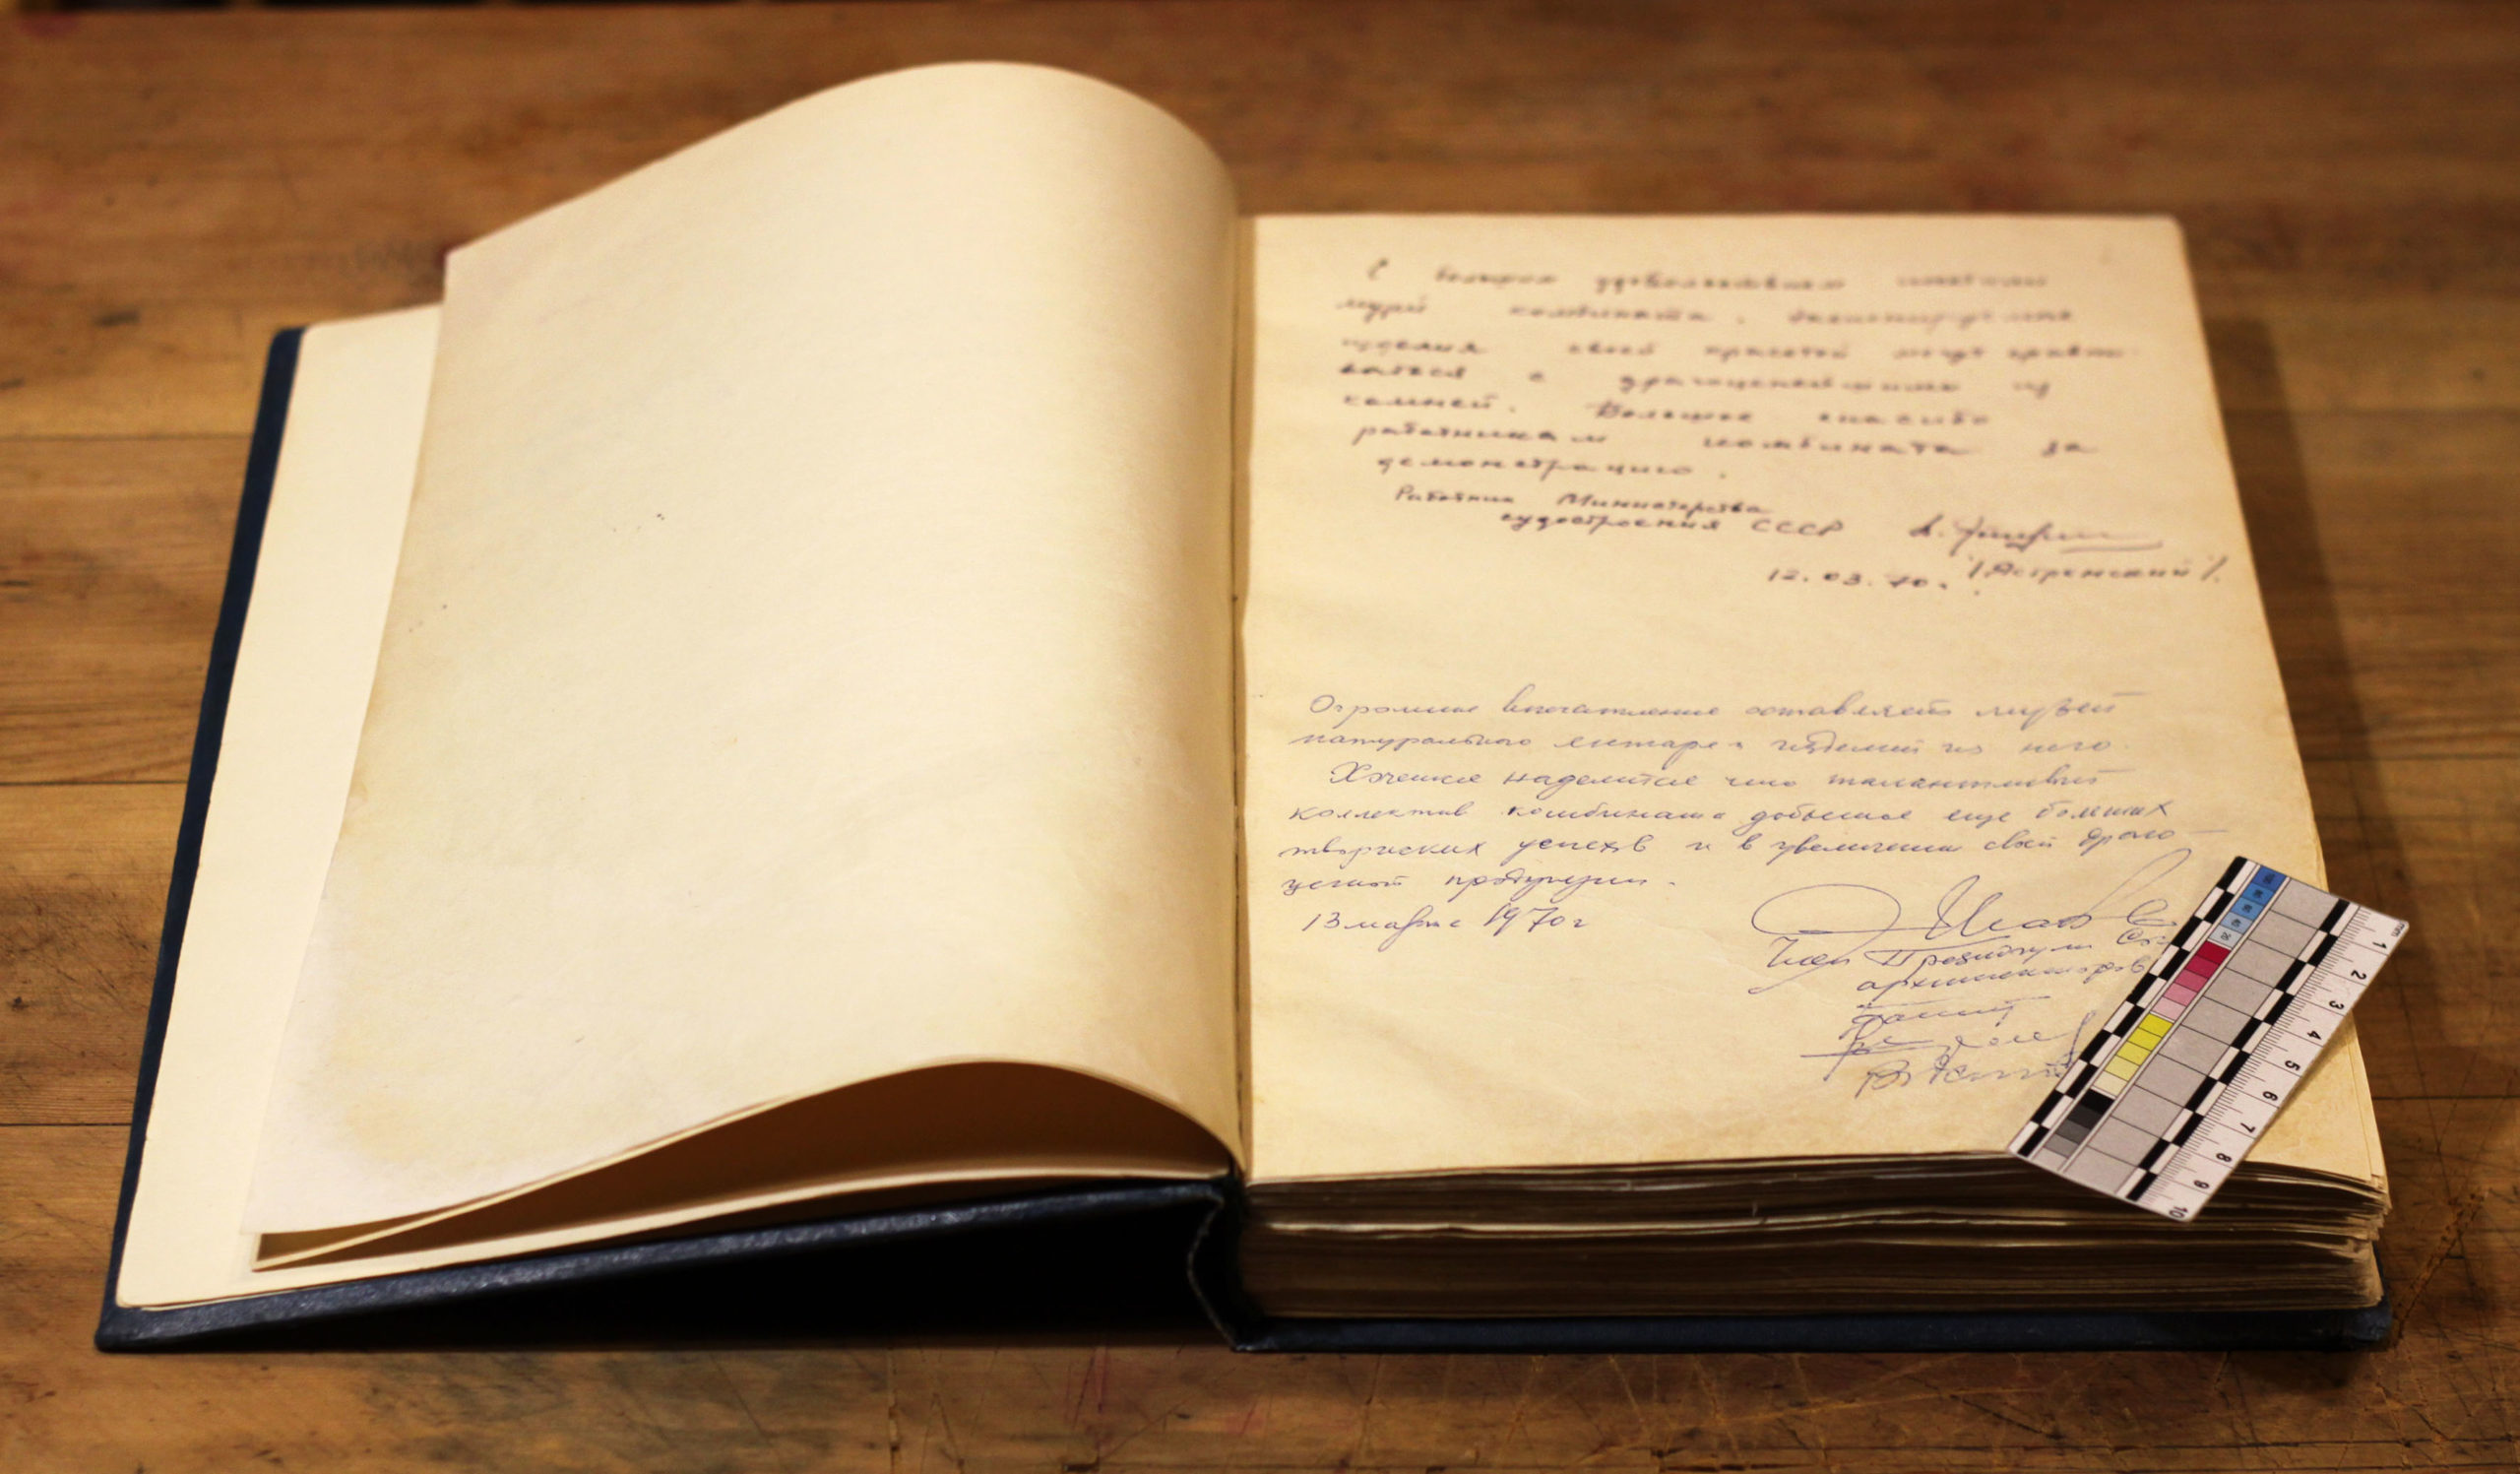 С большим удовольствием смотрели
музей комбината. Экспонируемые
изделия своей красотой могут сравни-
ваться с драгоценнейшими из
камней. Большое спасибо
работникам комбината за
демонстрацию.
Работник Министерства
судостроения СССР
12.03.70. /Астренский/.
Огромное впечатление оставляет музей
натурального янтаря и изделий из него.
Хочется надеятся что талантливый
коллектив комбината добьется еще больших
творческих успехов и в увеличении своей драго-
ценной продукции.
13 марта 1970г
Член Президиума
архитекторов
1
2
3
4
5
6
7
8
9
10